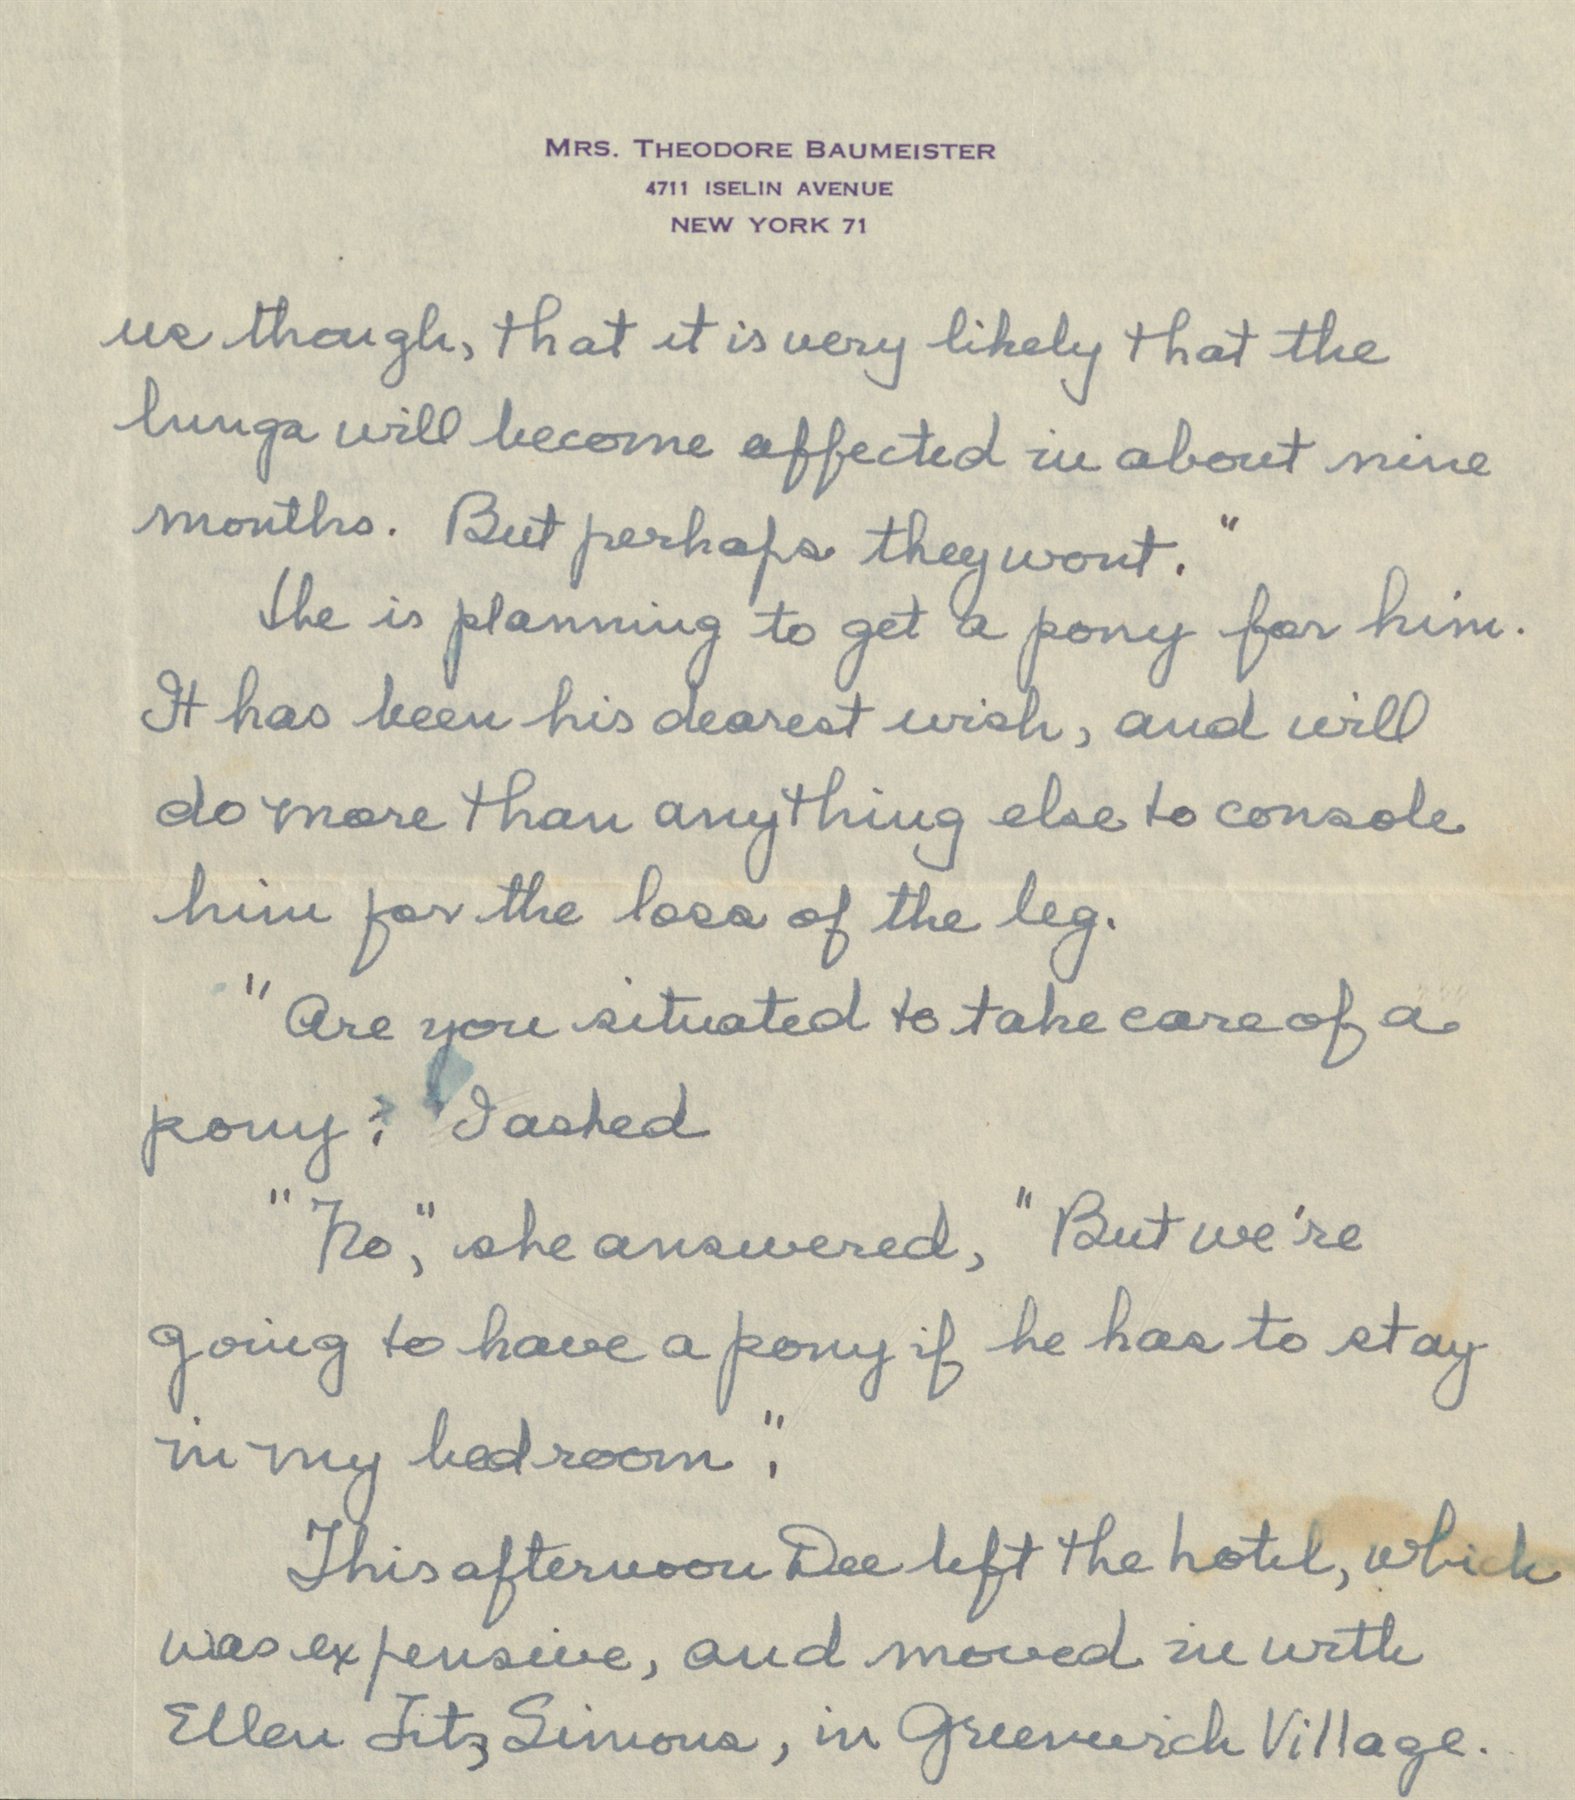 MRS. THEODORE BAUMEISTER
4711 ISELIN AVENUE
NEW YORK 71
us though, that it is very likely that the
lungs will become affected in about nine
months. But perhaps they wont."
She is planning to get a pony for him.
It has been his dearest wish, and will
do more than anything else to console
him for the loss of the leg.
"Are you situated to take care of a
pony?" I asked
"No," she answered, "But we're
going to have a pony if he has to stay
in my bedroom".
This afternoon Dee left the hotel, which
was expensive, and moved in with
Ellen FitzSimons, in Greenwich Village.